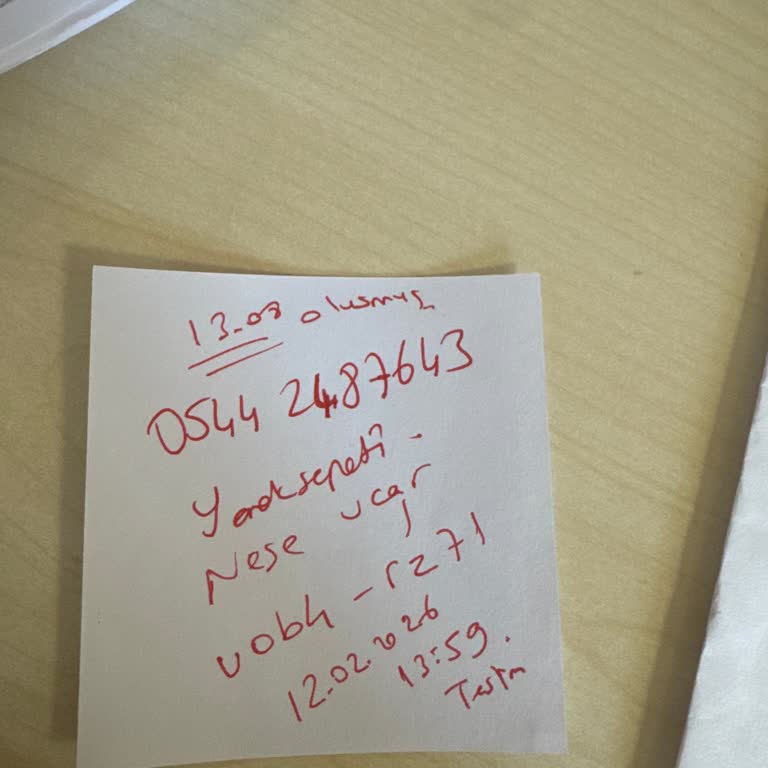 13.08 olusmuş
0544 2487643
Yemeksepeti.
Nese ucar
vobh-rz71
12.02.2026
13:59.